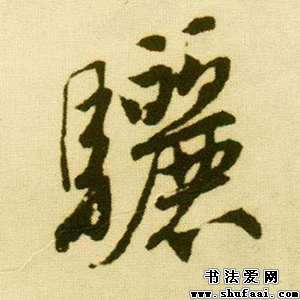 驪
书法爱网
www.shufaai.com